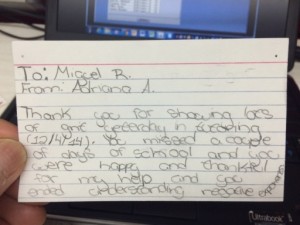 To: Miguel R.
From: Adriana A.
Thank you for showing lots
of yesterday in tutoring
(12/4/14). You missed a couple
of days of school and you
were happy and thankful
for my help and you
ended understanding negative exponents
Ultrabook